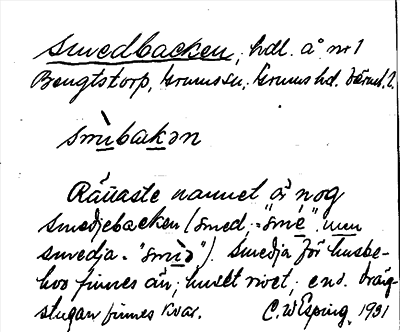 Smedbacken, hdl. å nr 1
Bengtstorp, Grums sn, Grums hd. Värml. l.
smìbakən
Rättaste namnet är nog
Smedjebacken (smed = "smé" men
smedja = "smìə"). Smedja för husbe-
hov finnes än; huset rivet, end. dräng-
stugan finnes kvar. C. W Esping. 1931